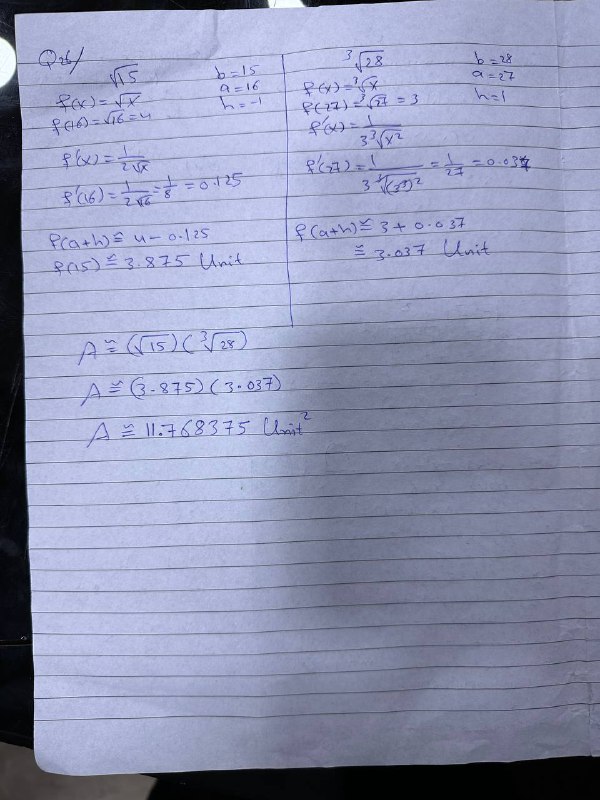 Q26/
√15
b=15
a=16
h=-1
f(x)=√x
f(16)=√16=4
f'(x)=1/2√x
f'(16)=1/2√16=1/8=0.125
f(a+h)≅4-0.125
f(15)≅3.875 Unit
³√28
b=28
a=27
h=1
f(x)=³√x
f(27)=³√27=3
f'(x)=1/3³√x²
f'(27)=1/3³√(3³)²=1/27=0.037
f(a+h)≅3+0.037
≅3.037 Unit
A≅(√15)(³√28)
A≅(3.875)(3.037)
A≅11.768375 Unit²